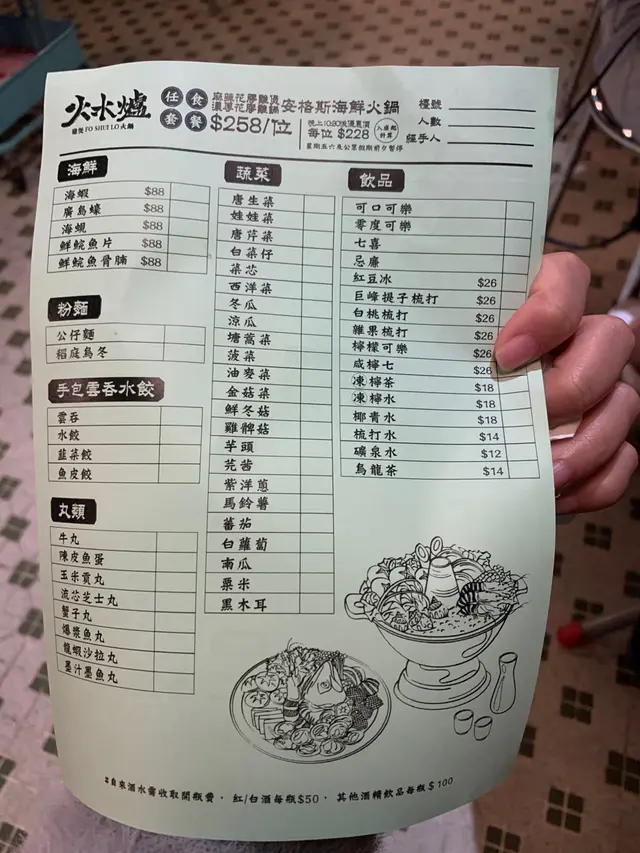 火水爐
雞煲 FO SHUI LO 火鍋
任食套餐
麻辣花膠雞煲
濃湯花膠雞鍋
安格斯海鮮火鍋
$258/位
晚上10:30後優惠價
每位 $228
入座起計算
星期五六及公眾假期前夕暫停
檯號
人數
經手人
海鮮
海蝦 $88
廣島蠔 $88
海蜆 $88
鮮鯇魚片 $88
鮮鯇魚骨腩 $88
粉麵
公仔麵
稻庭烏冬
手包雲吞水餃
雲吞
水餃
韮菜餃
魚皮餃
丸類
牛丸
陳皮魚蛋
玉米貢丸
流芯芝士丸
蟹子丸
爆漿魚丸
龍蝦沙拉丸
墨汁墨魚丸
蔬菜
唐生菜
娃娃菜
唐芹菜
白菜仔
菜芯
西洋菜
冬瓜
涼瓜
塘蒿菜
菠菜
油麥菜
金菇菜
鮮冬菇
雞髀菇
芋頭
芫茜
紫洋蔥
馬鈴薯
蕃茄
白蘿蔔
南瓜
粟米
黑木耳
飲品
可口可樂
零度可樂
七喜
忌廉
紅豆冰 $26
巨峰提子梳打 $26
白桃梳打 $26
雜果梳打 $26
檸檬可樂 $26
咸檸七 $26
凍檸茶 $18
凍檸水 $18
椰青水 $18
梳打水 $14
礦泉水 $12
烏龍茶 $14
自來酒水需收取開瓶費，紅/白酒每瓶$50，其他酒精飲品每瓶$100